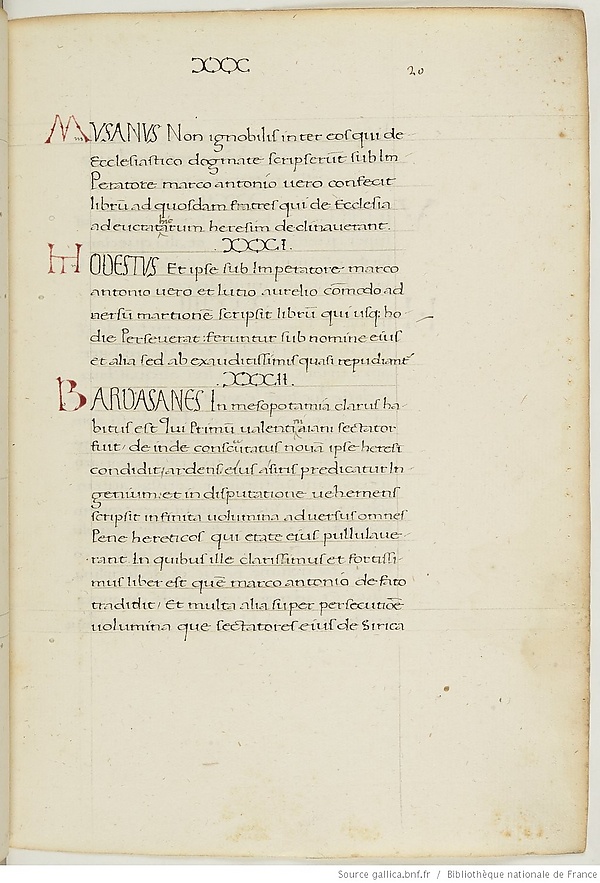 XXX
20
MUSANUS Non ignobilis inter eos qui de
Ecclesiastico dogmate scripserūt sub Im
Peratore marco antonio uero confecit
librū ad quosdam fratres qui de Ecclesia
ad eucratarum heresim declinauerant.
.XXXI.
MODESTUS Et ipse sub Imperatore marco
antonio uero et lutio aurelio cōmodo ad
uersū martionē scripsit librū qui usq; ho
die Perseuerat: feruntur sub nomine eius
et alia sed ab exauditissimis quasi repudiant
.XXXII.
BARDASANES In mesopotamia clarus ha
bitus est Qui Primū ualentiniani sectator
fuit/ deinde consecutatus nouā ipse heresī
condidit/ ardens eius asiris predicatur In
genium: et in disputatione uehemens
scripsit infinita uolumina aduersus omnes
Pene hereticos qui etate eius pullulaue
rant. In quibus ille clarissimus et fortissi
mus liber est quē marco antonio de fato
tradidit/ Et multa alia super persecutiōe
uolumina que sectatores eius de Sirica
Source gallica.bnf.fr / Bibliothèque nationale de France